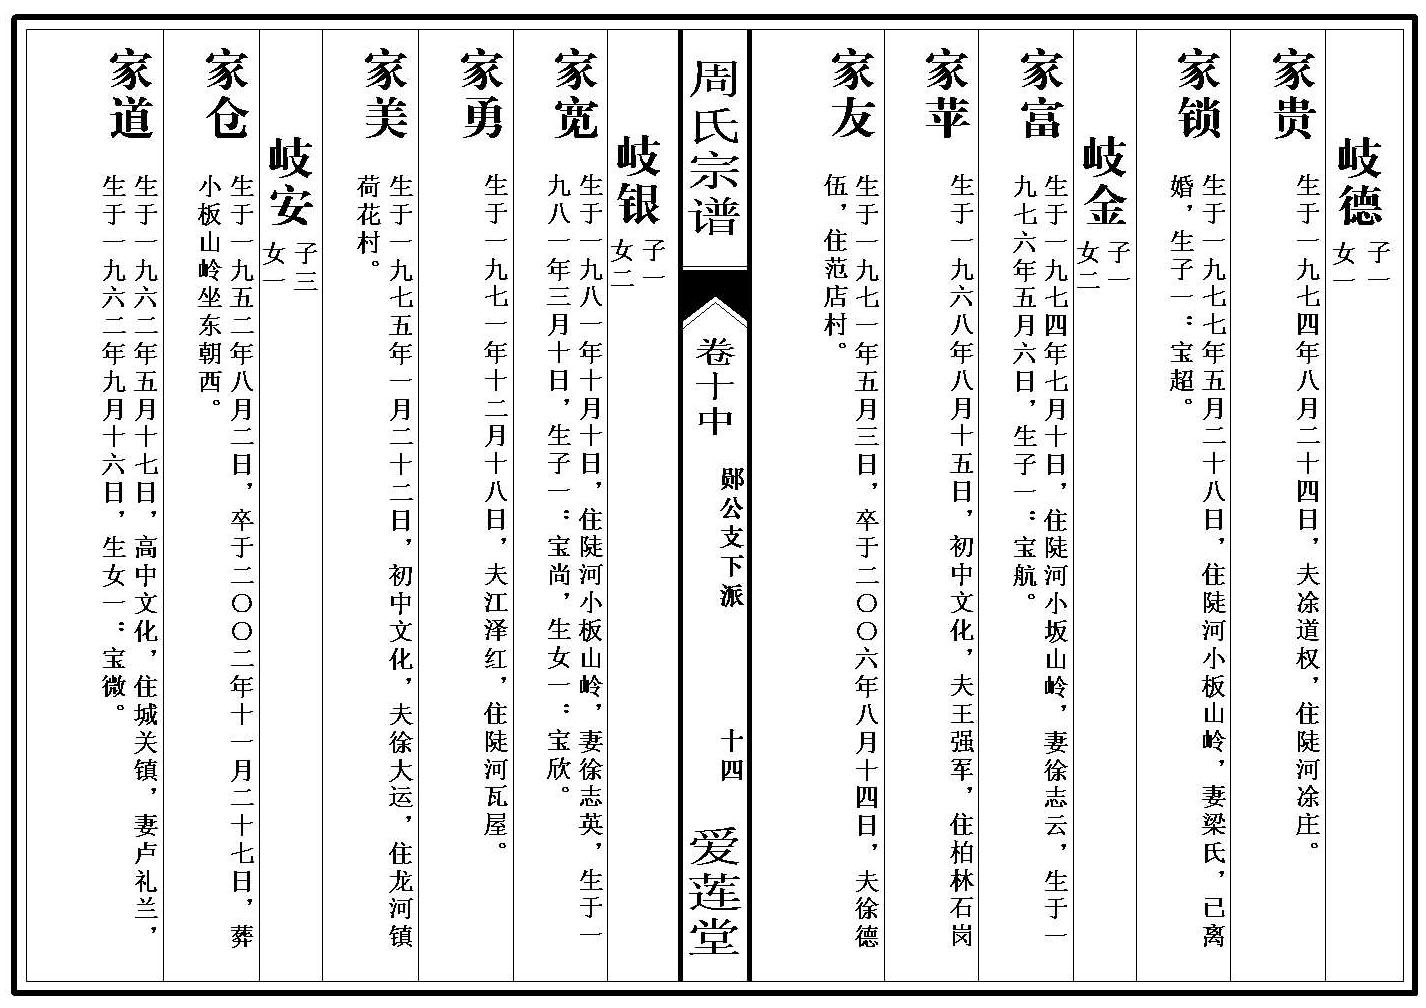 岐德
子一
女一
家贵
生于一九七四年八月二十四日，夫凃道权，住陡河凃庄。
家锁
生于一九七七年五月二十八日，住陡河小板山岭，妻梁氏，已离
婚，生子一：宝超。
岐金
子一
女二
家富
生于一九七四年七月十日，住陡河小坂山岭，妻徐志云，生于一
九七六年五月六日，生子一：宝航。
家苹
生于一九六八年八月十五日，初中文化，夫王强军，住柏林石岗
家友
生于一九七一年五月三日，卒于二〇〇六年八月十四日，夫徐德
伍，住范店村。
周氏宗谱
卷十中
郧公支下派
十四
爱莲堂
岐银
子一
女二
家宽
生于一九八一年十月十日，住陡河小板山岭，妻徐志英，生于一
九八一年三月十日，生子一：宝尚，生女一：宝欣。
家勇
生于一九七一年十二月十八日，夫江泽红，住陡河瓦屋。
家美
生于一九七五年一月二十二日，初中文化，夫徐大运，住龙河镇
荷花村。
岐安
子三
女一
家仓
生于一九五二年八月二日，卒于二〇〇二年十一月二十七日，葬
小板山岭坐东朝西。
家道
生于一九六二年五月十七日，高中文化，住城关镇，妻卢礼兰，
生于一九六二年九月十六日，生女一：宝微。